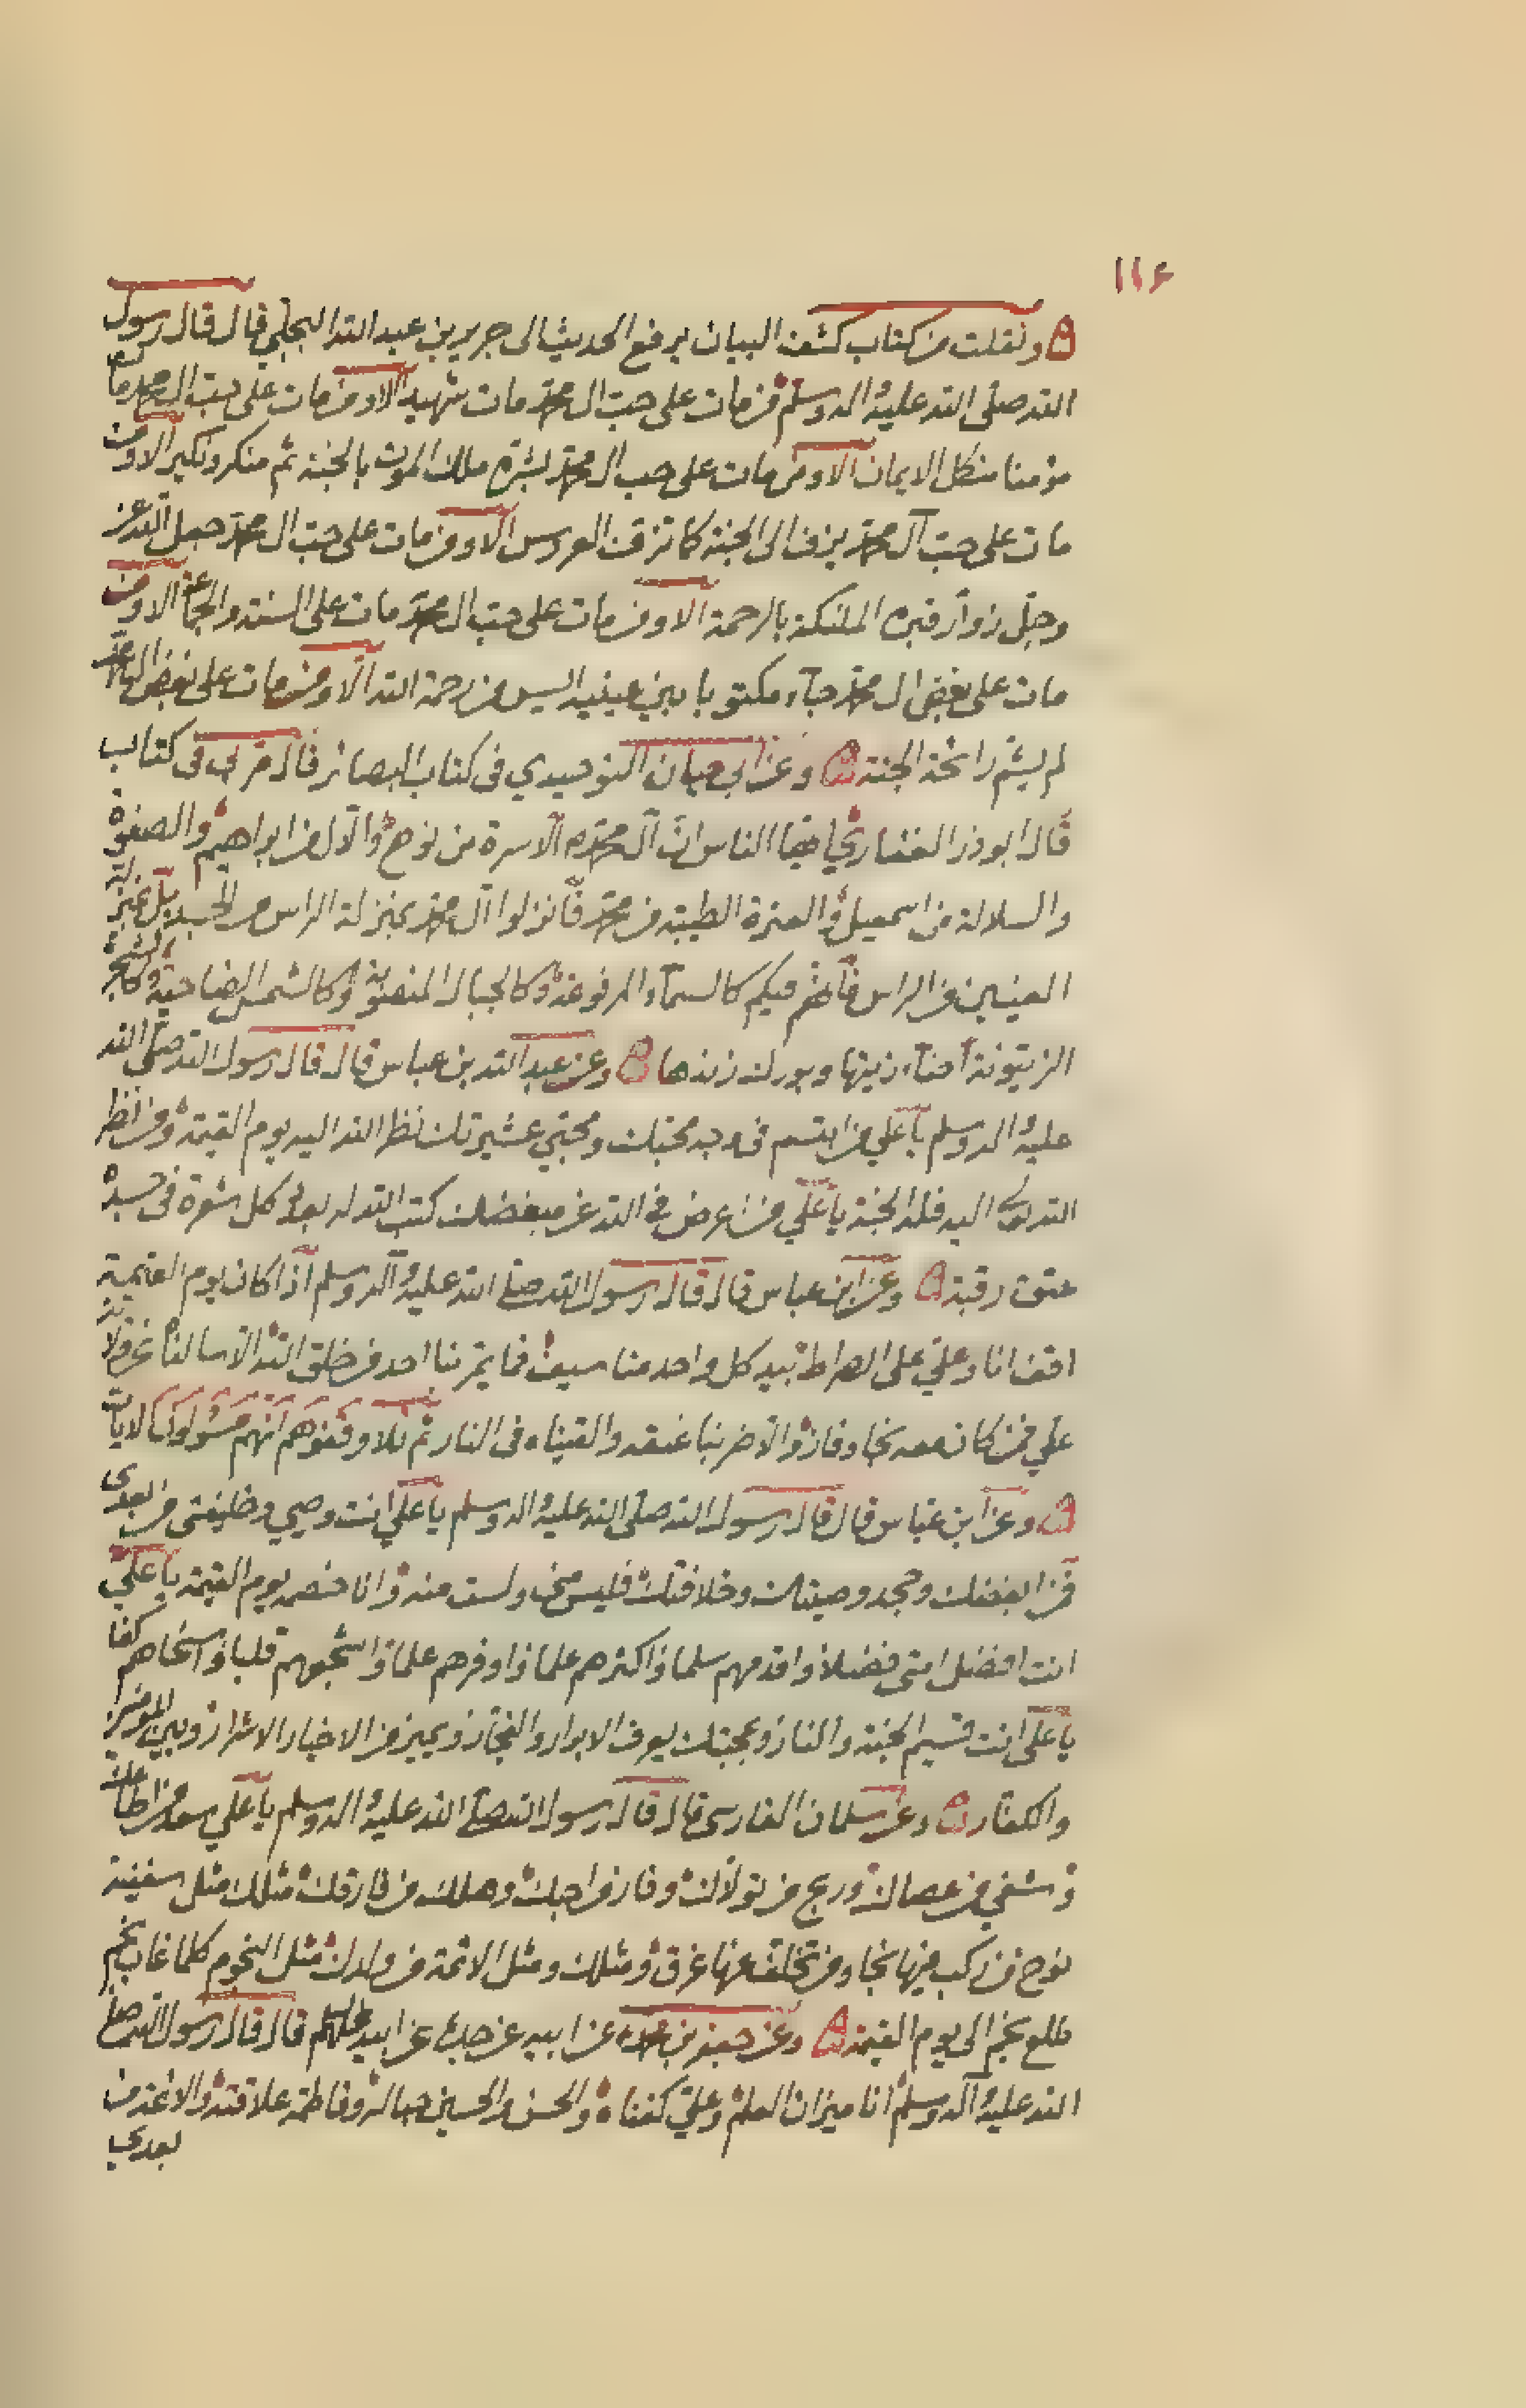 ١١٤
ونقلت من كتاب كشف البيان يرفع الحديث الى جرير بن عبد الله البجلي قال قال رسول
الله صلى الله عليه واله وسلم من مات على حب ال محمد مات شهيدا الا ومن مات على حب ال محمد مات
مؤمنا مستكمل الايمان الا ومن مات على حب ال محمد بشره ملك الموت بالجنة ثم منكر ونكير الا ومن
مات على حب آل محمد يزف الى الجنة كما تزف العروس الا ومن مات على حب ال محمد جعل الله عز
وجل زوار قبره الملئكة بالرحمة الا ومن مات على حب ال محمد مات على السنة والجماعة الا ومن
مات على بغض ال محمد جآء مكتوبا بين عينيه اليس من رحمة الله الا ومن مات على بغض ال محمد
لم يشم رائحة الجنة وعن ابي حيان التوحيدي في كتاب البصائر قال مر بي في كتاب
قال ابوذر الغفاري ايها الناس ان آل محمد الاسرة من نوح والآل من ابراهيم والصفوة
والسلالة من اسمعيل والعترة الطيبة من محمد فانزلوا آل محمد بمنزلة الراس من الجسد بل بمنزلة
العينين من الراس فانهم فيكم كالسمآء المرفوعة وكالجبال المنصوبة وكالشمس الضاحية وكالشجرة
الزيتونة اضآء زيتها وبورك زندها وعن عبد الله بن عباس قال قال رسول الله صلى الله
عليه واله وسلم يا علي من ابتسم في وجه محبك ومحبي عشيرتك نظر الله اليه يوم القيمة ومن نظر
الله تعالى اليه فله الجنة يا علي من اعرض في الله عن مبغضك كتب الله له بعدد كل شعرة في جسده
عتق رقبة وعن ابن عباس قال قال رسول الله صلى الله عليه وآله وسلم اذا كان يوم القيمة
اقف انا وعلي على الصراط بيد كل واحد منا سيف فما يمر بنا احد من خلق الله الا سالناه عن ولاية
علي فمن كان معه نجا وفاز والا ضربنا عنقه والقيناه في النار ثم تلا وقفوهم انهم مسؤلون الايات
وعن ابن عباس قال قال رسول الله صلى الله عليه واله وسلم يا علي انت وصيي وخليفتي من بعدي
فمن ابغضك وجحد وصيتك وخلافتك فليس مني ولست منه وانا خصمه يوم القيمة يا علي
انت افضل امتي فضلا واقدمهم سلما واكثرهم علما واوفرهم علما واشجعهم قلبا واسخاهم كفا
يا علي انت قسيم الجنة والنار وبمحبتك يعرف الابرار والفجار ويميز من الاخيار الاشرار وبين المؤمنين
والكفار وعن سلمان الفارسي قال قال رسول الله صلى الله عليه واله وسلم يا علي سعد من اطاعك
وشقي من عصاك وربح من تولاك وفاز من احبك وهلك من فارقك مثلك مثل سفينة
نوح من ركب فيها نجا ومن تخلف عنها غرق ومثلك ومثل الائمة من ولدك مثل النجوم كلما غاب نجم
طلع نجم الى يوم القيمة وعن جعفر بن محمد عن ابيه عن جده عن ابيه عليهم قال قال رسول الله صلى
الله عليه وآله وسلم انا ميزان العلم وعلي كفتاه والحسن والحسين حباله وفاطمة علاقته والائمة من
بعدي